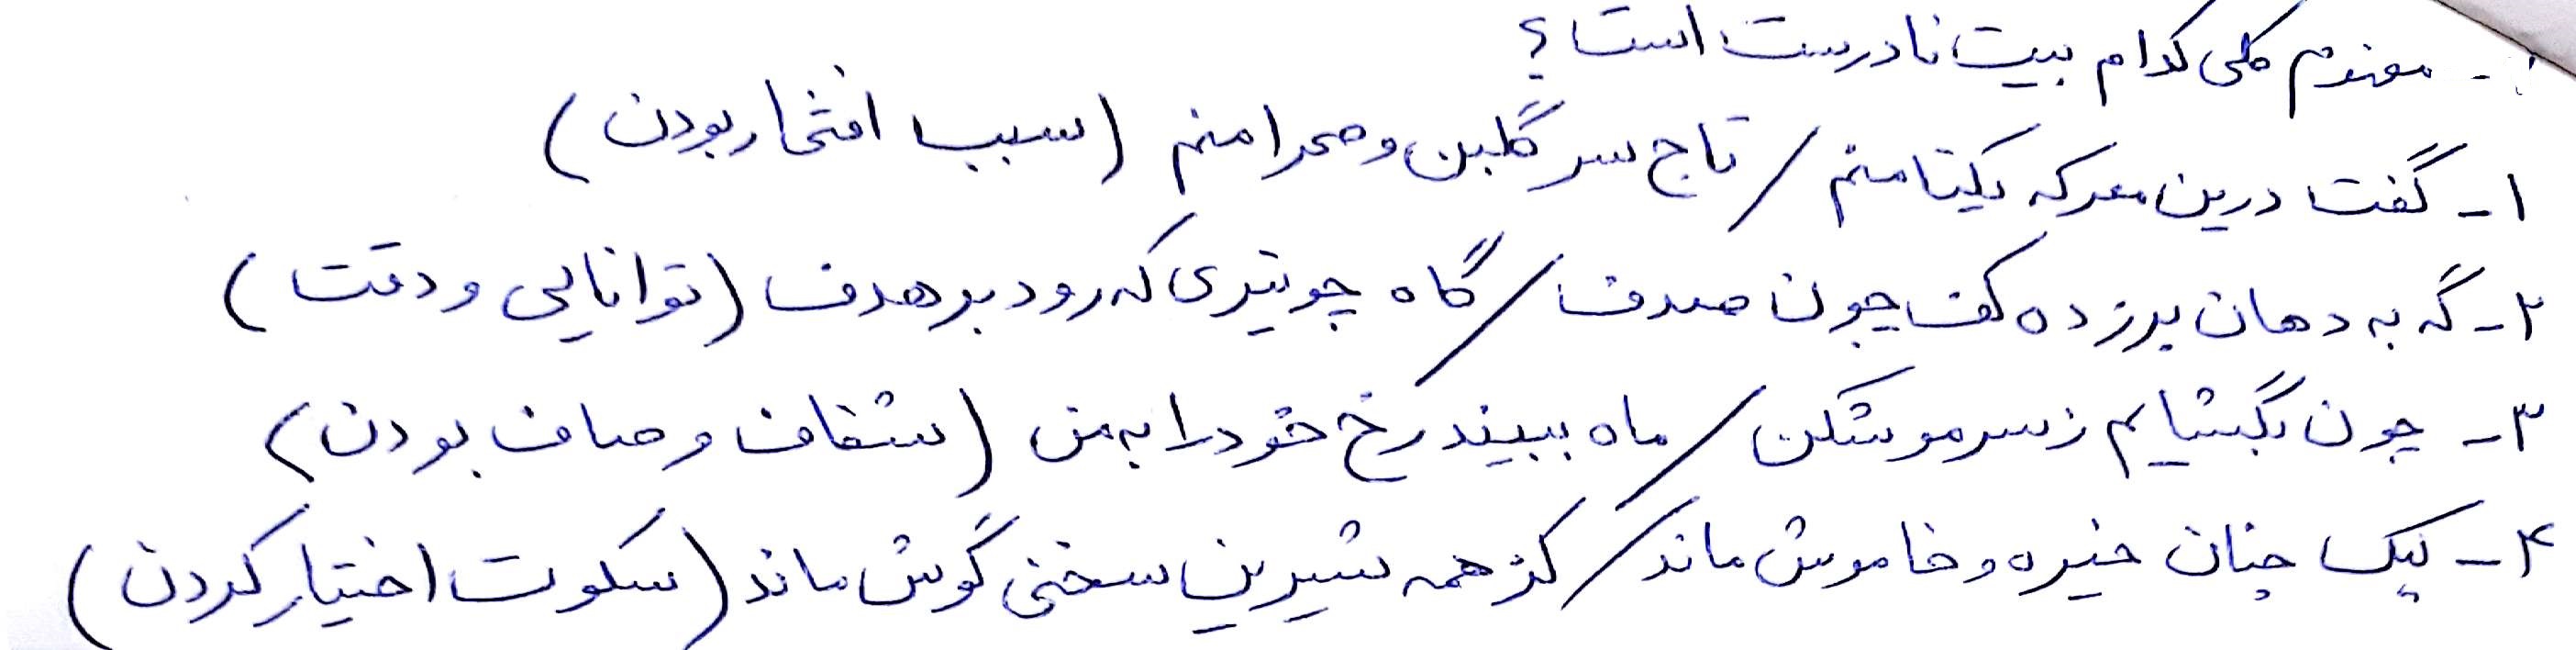 - مفهوم کلی کدام بیت نادرست است؟
۱- گفت درین معرکه یکتا منم / تاج سر گلبن و صحرا منم (سبب افتخار بودن)
۲- گه به دهان برزده کف چون صدف / گاه چو تیری که رود بر هدف (توانایی و دقت)
۳- چون بگشایم ز سر مو شکن / ماه ببیند رخ خود را به من (شفاف و صاف بودن)
۴- لیک چنان خیره و خاموش ماند / کز همه شیرین سخنی گوش ماند (سکوت اختیار کردن)